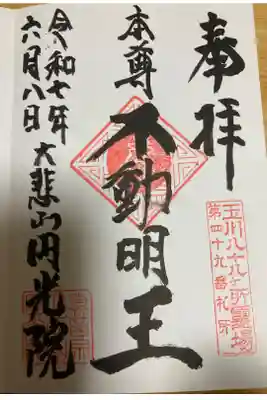 奉拝
玉川八十八ヶ所霊場
第四十九番札所
本尊
不動明王
大悲山円光院
令和七年
六月八日